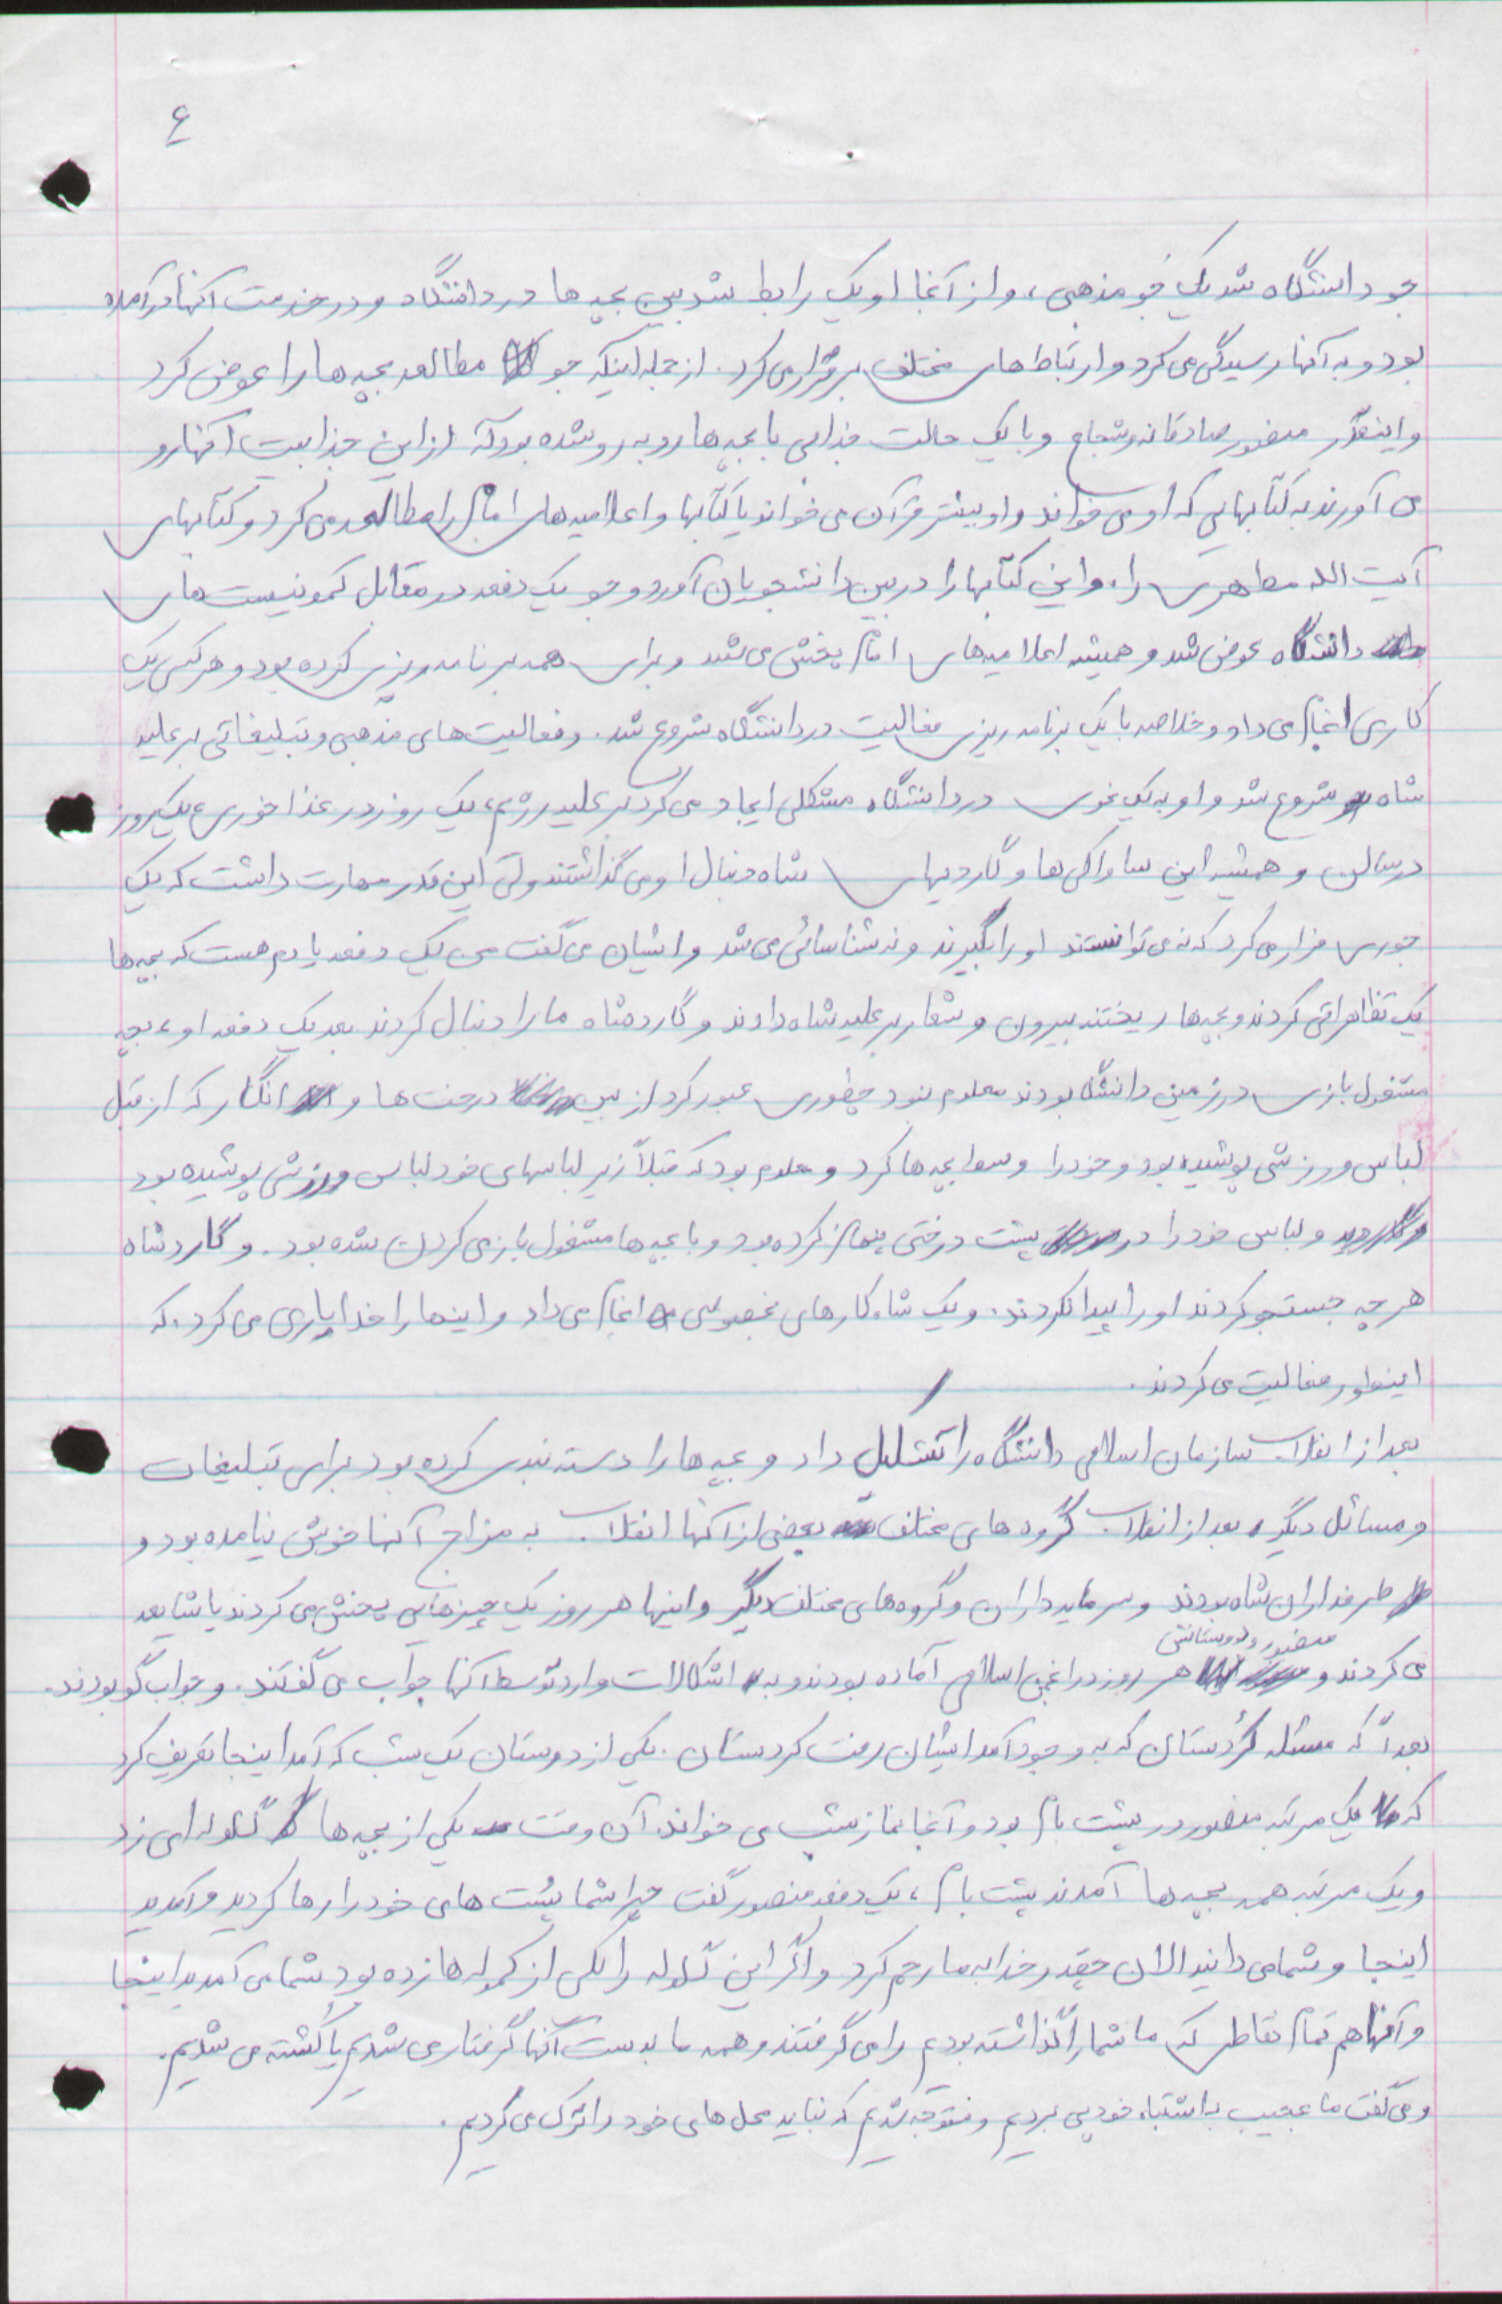 ۶
جو دانشگاه شد یک جو مذهبی، و از آنجا او یک رابط شد بین بچه ها در دانشگاه و در خدمت آنها درآمده
بود و به آنها رسیدگی می کرد و ارتباط های مختلف برقرار می کرد. از جمله اینکه جو مطالعه بچه ها را عوض کرد
و اینقدر منصور صادقانه و شجاع و با یک حالت جذابی با بچه ها روبه رو شده بود که از این جذابیت آنها رو
می آورند به کتابهایی که او می خواند و او بیشتر قرآن می خواند یا کتابها و اعلامیه های امام را مطالعه می کرد و کتابهای
آیت الله مطهری را، و این کتابها را در بین دانشجویان آورد و جو یک دفعه در مقابل کمونیست های
دانشگاه عوض شد و همیشه اعلامیه های امام پخش می شد و برای همه برنامه ریزی کرده بود و هر کس یک
کاری انجام می داد و خلاصه با یک برنامه ریزی فعالیت در دانشگاه شروع شد. و فعالیت های مذهبی و تبلیغاتی بر علیه
شاه شروع شد و او به یک نحوی در دانشگاه مشکلی ایجاد می کرد بر علیه رژیم، یک روز در غذا خوری، یک روز
در سالن و همیشه این ساواکی ها و گاردیهای شاه دنبال او می گذاشتند ولی این قدر مهارت داشت که یک
جوری فرار می کرد که نه می توانستند او را بگیرند و نه شناسائی می شد و ایشان می گفت من یک دفعه یادم هست که بچه ها
یک تظاهراتی کردند و بچه ها ریختند بیرون و شعار بر علیه شاه دادند و گارد شاه ما را دنبال کردند بعد یک دفعه او، بچه
مشغول بازی در زمین دانشگاه بودند معلوم نبود چطوری عبور کرد از بین درخت ها و انگار که از قبل
لباس ورزشی پوشیده بود و خود را وسط بچه ها کرد و معلوم بود که قبلاً زیر لباسهای خود لباس ورزشی پوشیده بود
و لباس خود را در پشت درختی پنهان کرده بود و با بچه ها مشغول بازی کردن شده بود. و گارد شاه
هر چه جستجو کردند او را پیدا نکردند. و یک شاه کارهای مخصوصی انجام می داد و اینها را خدا یاری می کرد. که
اینطور فعالیت می کردند.
بعد از انقلاب سازمان اسلامی دانشگاه را تشکیل داد و بچه ها را دسته بندی کرده بود برای تبلیغات
و مسائل دیگر، بعد از انقلاب گروه های مختلف بعضی از آنها انقلاب به مزاج آنها خوش نیامده بود و
طرفداران شاه بودند و سرمایه داران و گروه های مختلف دیگر و اینها هر روز یک چیزهایی پخش می کردند یا شایعه
می کردند و منصور و دوستانش هر روز در انجمن اسلامی آماده بودند و به اشکالات وارد توسط آنها جواب می گفتند. و جواب گو بودند.
بعداً که مسئله کردستان که به وجود آمد ایشان رفت کردستان. یکی از دوستان یک شب که آمد اینجا تعریف کرد
که یک مرتبه منصور در پشت بام بود و آنجا نماز شب می خواند. آن وقت یکی از بچه ها گلوله ای زد
و یک مرتبه همه بچه ها آمدند پشت بام، یک دفعه منصور گفت چرا شما پُست های خود را رها کردید و آمدید
اینجا و شما می دانید الان چقدر خدا به ما رحم کرد و اگر این گلوله را یکی از کموله ها زده بود شما می آمدید اینجا
و آنها هم تمام نقاطی که ما شما را گذاشته بودیم را می گرفتند و همه ما بدست آنها گرفتار می شدیم یا کشته می شدیم.
و می گفت ما عجیب به اشتباه خود پی بردیم و متوجه شدیم که نباید محل های خود را ترک می کردیم.